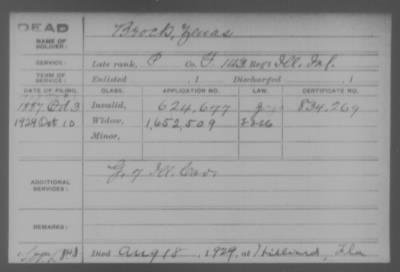 DEAD
NAME OF SOLDIER: Brock, Zenas
SERVICE: Late rank, P Co. F, 143 Reg't Ill. Inf.
TERM OF SERVICE: Enlisted , 1 Discharged , 1
DATE OF FILING. CLASS. APPLICATION NO. LAW. CERTIFICATE NO.
1887 Oct 3 Invalid, 624,647 834,269
1929 Oct 10 Widow, 1,652,509
Minor,
ADDITIONAL SERVICES: G, 7 Ill. Cav.
REMARKS:
Died Aug 18, 1929, at Hilliard, Fla